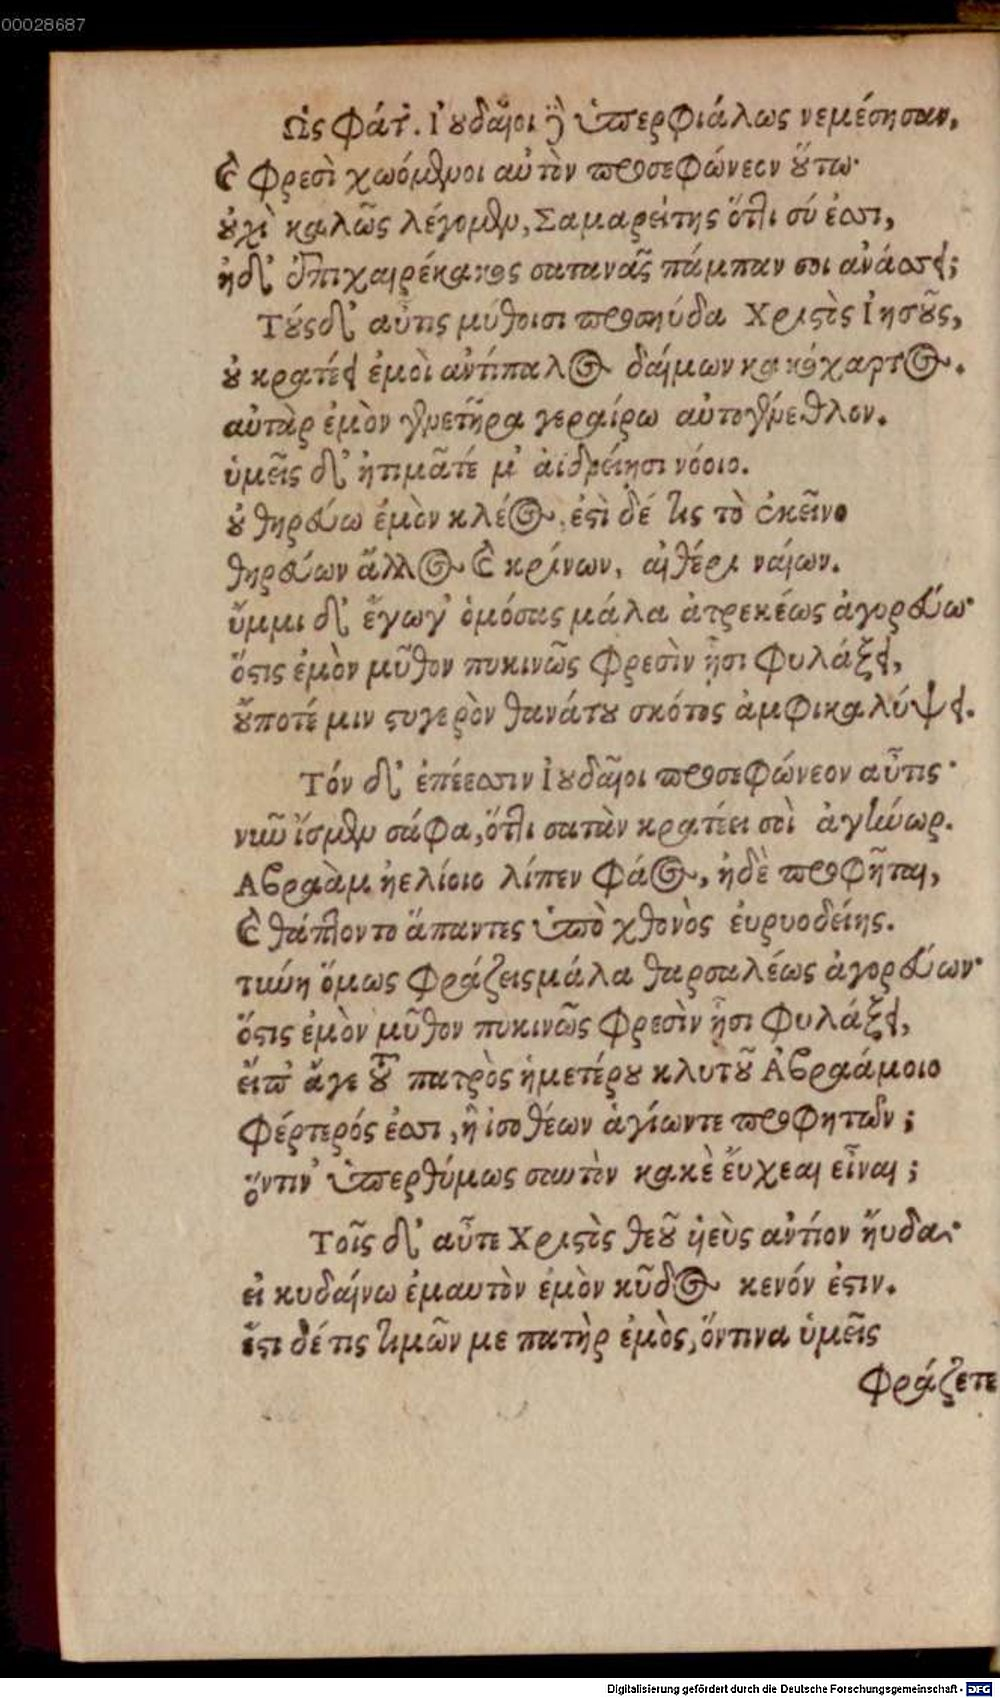 00028687
Ὣς φάτ'. Ἰουδαῖοι δὲ ὑπερφιάλως νεμέσησαν,
καὶ φρεσὶ χωόμενοι αὐτὸν προσεφώνεον οὕτω·
οὐχὶ καλῶς λέγομεν, Σαμαρείτης ὅττι σύ ἐσσι,
ἠδ' ἐπιχαιρέκακος σατανᾶς πάμπαν σοι ἀνάσσει;
Τούς δ' αὖτις μύθοισι προσηύδα Χριστὸς Ἰησοῦς,
οὐ κρατέει ἐμοὶ ἀντίπαλος δαίμων κακόχαρτος.
αὐτὰρ ἐμὸν γενετῆρα γεραίρω αὐτογένεθλον.
ὑμεῖς δ' ἠτιμᾶτέ μ' ἀϊδρείησι νόοιο.
οὐ θηρεύω ἐμὸν κλέος, ἐστὶ δέ τις τὸ ἐκεῖνο
θηρεύων ἄλλος καὶ κρίνων, αἰθέρι ναίων.
ὔμμι δ' ἔγωγ' ὀμόσας μάλα ἀτρεκέως ἀγορεύω·
ὅστις ἐμὸν μῦθον πυκινῶς φρεσὶν ᾗσι φυλάξει,
οὔποτέ μιν στυγερὸν θανάτου σκότος ἀμφικαλύψει.
Τόν δ' ἐπέεσσιν Ἰουδαῖοι προσεφώνεον αὖτις·
νῦν ἴσμεν σάφα, ὅττι σατὰν κρατέει σοὶ ἀγήνωρ.
Αβραὰμ ἠελίοιο λίπεν φάος, ἠδὲ προφῆται,
καὶ θάπτοντο ἅπαντες ὑπὸ χθονὸς εὐρυοδείης.
τύνη ὅμως φράζεις μάλα θαρσαλέως ἀγορεύων·
ὅστις ἐμὸν μῦθον πυκινῶς φρεσὶν ᾗσι φυλάξει,
εἴπ' ἄγε τοῦ πατρὸς ἡμετέρου κλυτοῦ Ἀβραάμοιο
φέρτερός ἐσσι, ἢ ἰσοθέων ἁγίωντε προφητῶν;
ὅντιν' ὑπερθύμως σαυτὸν κακὲ ἔυχεαι εἶναι;
Τοῖς δ' αὖτε Χριστὸς θεοῦ ὑεὺς ἀντίον ἤυδα·
εἰ κυδαίνω ἐμαυτὸν ἐμὸν κῦδος κενόν ἐστιν.
ἔστι δέ τις τιμῶν με πατὴρ ἐμὸς, ὅντινα ὑμεῖς
φράζετε
Digitalisierung gefördert durch die Deutsche Forschungsgemeinschaft - DFG